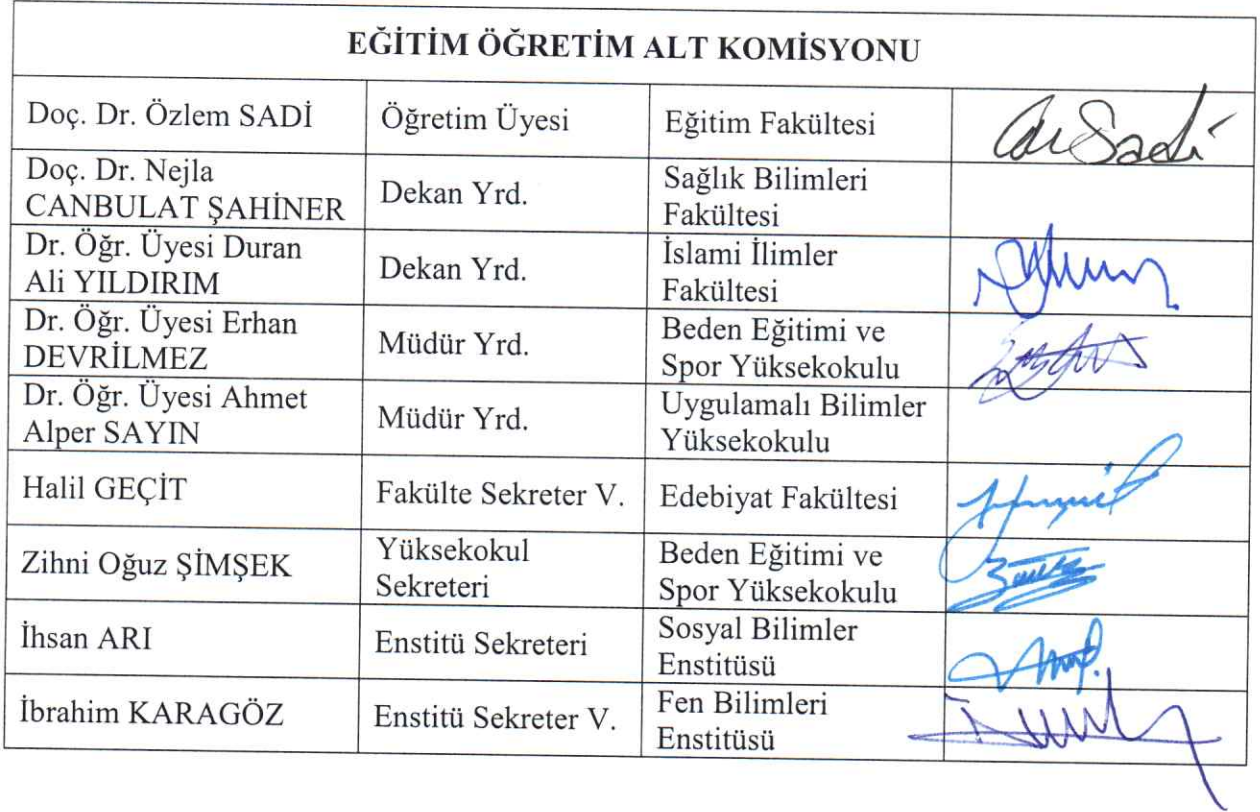 EĞİTİM ÖĞRETİM ALT KOMİSYONU
Doç. Dr. Özlem SADİ
Öğretim Üyesi
Eğitim Fakültesi
Sadi
Doç. Dr. Nejla
CANBULAT ŞAHİNER
Dekan Yrd.
Sağlık Bilimleri
Fakültesi
Dr. Öğr. Üyesi Duran
Ali YILDIRIM
Dekan Yrd.
İslami İlimler
Fakültesi
Dr. Öğr. Üyesi Erhan
DEVRİLMEZ
Müdür Yrd.
Beden Eğitimi ve
Spor Yüksekokulu
Dr. Öğr. Üyesi Ahmet
Alper SAYIN
Müdür Yrd.
Uygulamalı Bilimler
Yüksekokulu
Halil GEÇİT
Fakülte Sekreter V.
Edebiyat Fakültesi
Zihni Oğuz ŞİMŞEK
Yüksekokul
Sekreteri
Beden Eğitimi ve
Spor Yüksekokulu
İhsan ARI
Enstitü Sekreteri
Sosyal Bilimler
Enstitüsü
İbrahim KARAGÖZ
Enstitü Sekreter V.
Fen Bilimleri
Enstitüsü